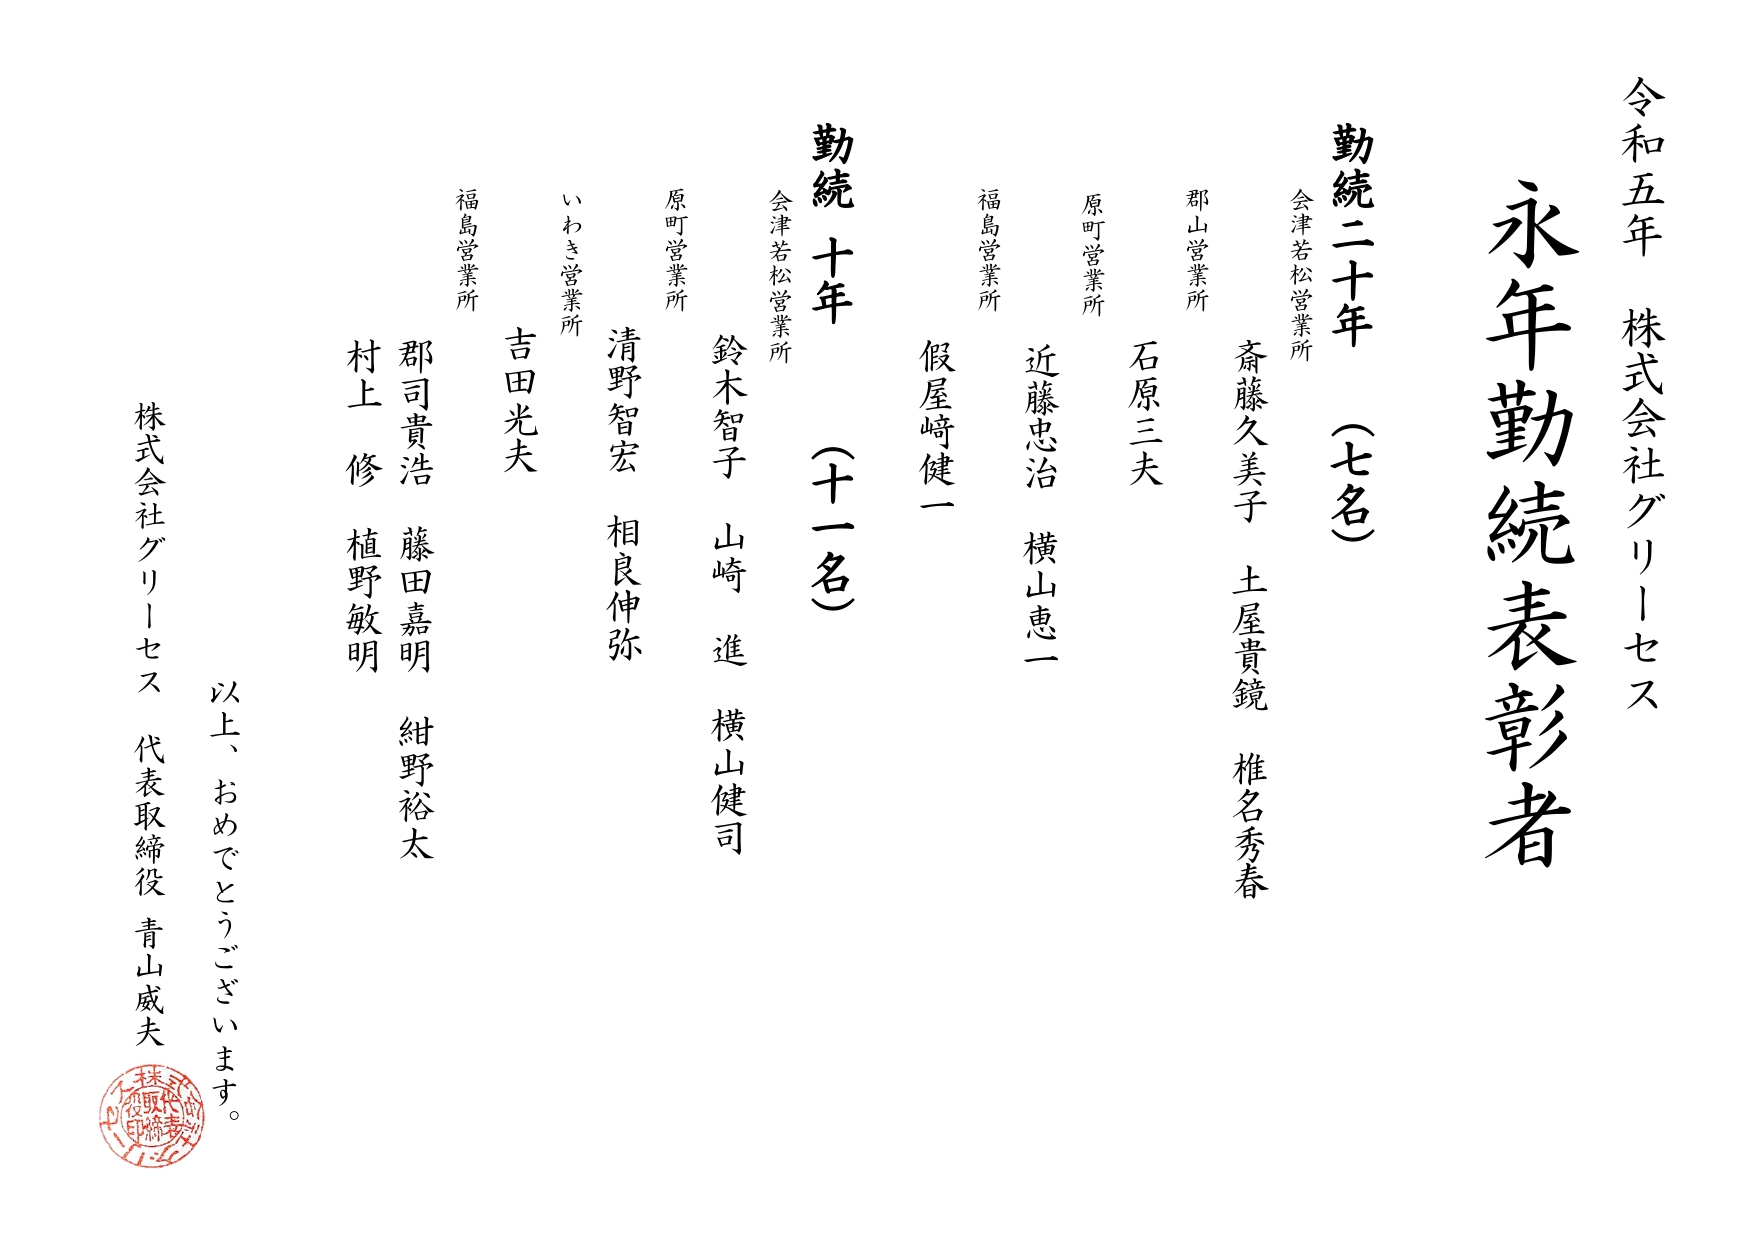 令和五年　株式会社グリーセス
永年勤続表彰者
勤続二十年　（七名）
会津若松営業所
斎藤久美子　土屋貴鏡　椎名秀春
郡山営業所
石原三夫
原町営業所
近藤忠治　横山恵一
福島営業所
假屋﨑健一
勤続 十年　　（十一名）
会津若松営業所
鈴木智子　山崎　進　横山健司
原町営業所
清野智宏　相良伸弥
いわき営業所
吉田光夫
福島営業所
郡司貴浩　藤田嘉明　紺野裕太
村上　修　植野敏明
以上、おめでとうございます。
株式会社グリーセス　代表取締役 青山威夫
株式会社グリーセス
代表取締役印